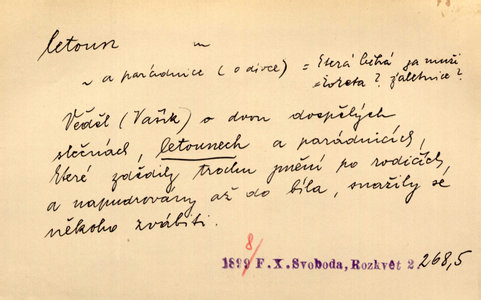 letoun m
~ a parádnice (o dívce) = která běhá za muži
= koketa? záletnice?
Věděl (Vařík) o dvou dospělých
slečnách, letounech a parádnicích,
které zdědily trochu jmění po rodičích,
a napudrovány až do bíla, snažily se
někoho zvábiti.
8/
1899 F. X. Svoboda, Rozkvět 2. 268,5